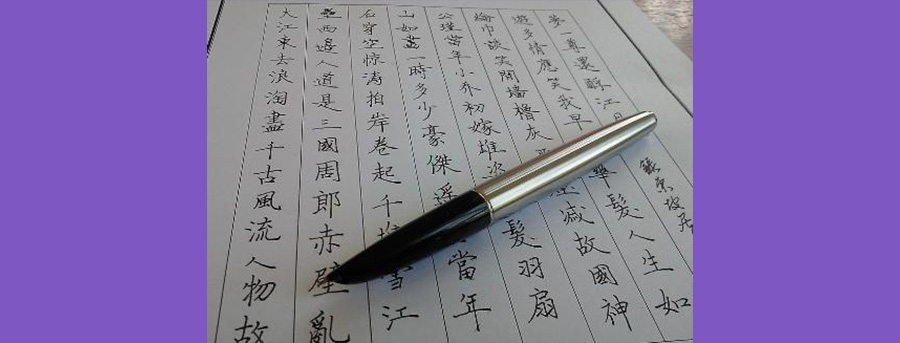 大江東去浪淘盡千古風流人物故
壘西邊人道是三國周郎赤壁亂
石穿空惊涛拍岸卷起千堆雪江
山如畫一時多少豪傑遥當年
公瑾當年小乔初嫁堆髮羽扇
綸巾談笑間墙櫓灰減故國神
遊多情應笑我早華髮人生如
夢一尊還酹江月